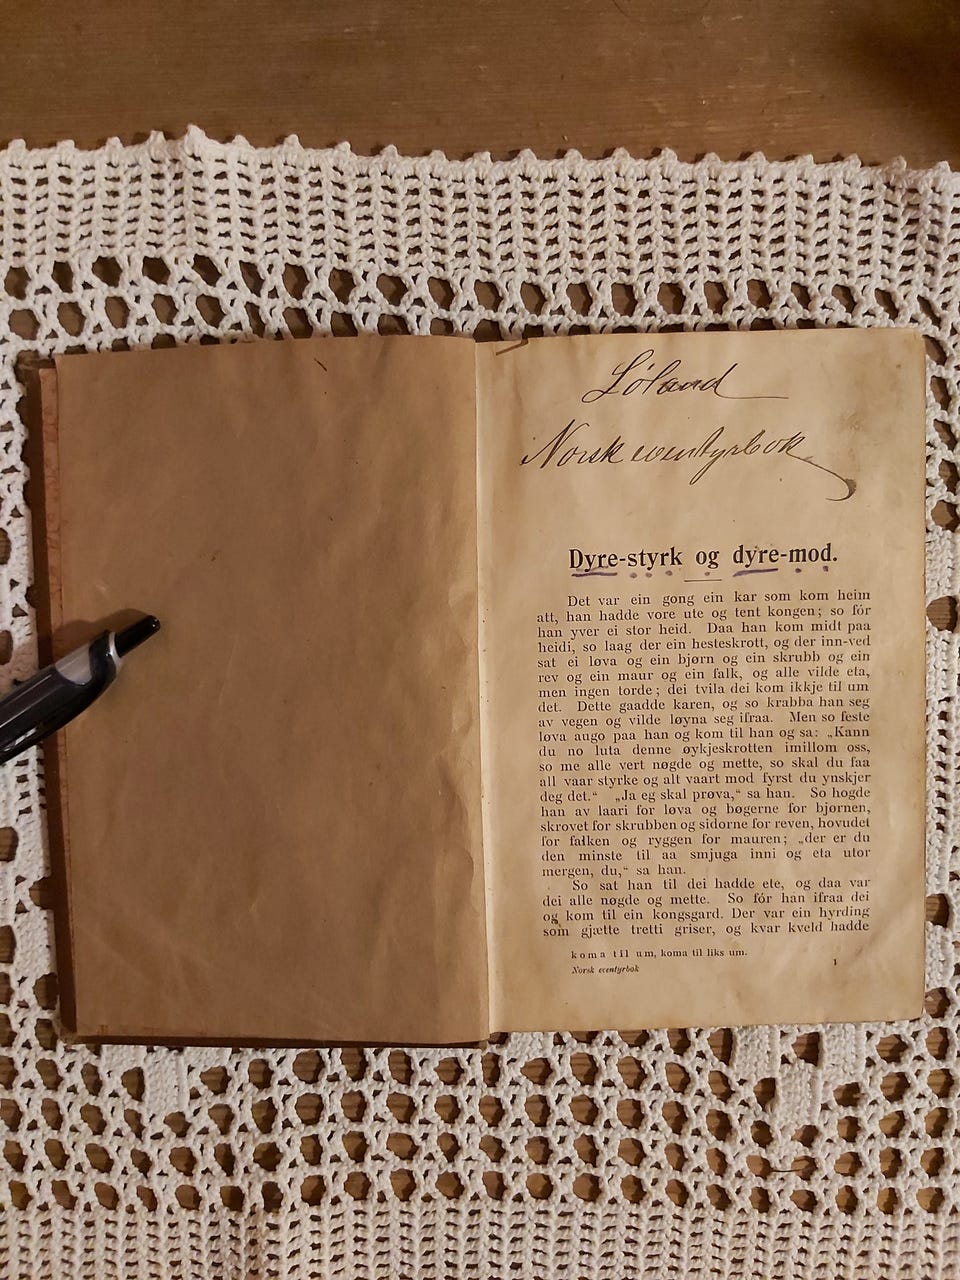 Løland
Norsk eventyrbok
Dyre-styrk og dyre-mod.
Det var ein gong ein kar som kom heim
att, han hadde vore ute og tent kongen; so fór
han yver ei stor heid. Daa han kom midt paa
heidi, so laag der ein hesteskrott, og der inn-ved
sat ei løva og ein bjørn og ein skrubb og ein
rev og ein maur og ein falk, og alle vilde eta,
men ingen torde; dei tvila dei kom ikkje til um
det. Dette gaadde karen, og so krabba han seg
av vegen og vilde løyna seg ifraa. Men so feste
løva augo paa han og kom til han og sa: „Kann
du no luta denne øykjeskrotten imillom oss,
so me alle vert nøgde og mette, so skal du faa
all vaar styrke og alt vaart mod fyrst du ynskjer
deg det.“ „Ja eg skal prøva,“ sa han. So hogde
han av laari for løva og bøgerne for bjørnen,
skrovet for skrubben og sidorne for reven, hovudet
for falken og ryggen for mauren; „der er du
den minste til aa smjuga inni og eta utor
mergen, du,“ sa han.
So sat han til dei hadde ete, og daa var
dei alle nøgde og mette. So fór han ifraa dei
og kom til ein kongsgard. Der var ein hyrding
som gjætte tretti griser, og kvar kveld hadde
koma til um, koma til liks um.
Norsk eventyrbok 1